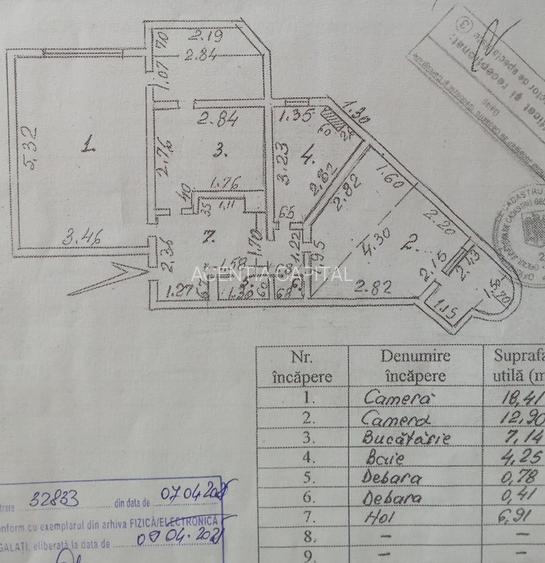 2.19
7.0
2.84
1.07
2.84
1.35
1.30
5.32
1.
2.76
3.
3.23
4.
60
2.82
2.82
1.60
40
1.76
35
1.11
66
2.20
3.46
7.
1.70
1.22
95
4.30
2.
2.36
AGENTIA CAPITAL
1.27
1.58
1.30
60
68
2.82
1.15
Nr. încăpere
Denumire încăpere
Suprafa utilă (m
1. Camera 18,41
2. Camera 12,90
3. Bucătărie 7,14
4. Baie 4,25
5. Debara 0,78
6. Debara 0,41
7. Hol 6,91
8. – –
9. – –
32833 din data de 07 04 202
onform cu exemplarul din arhiva FIZICĂ/ELECTRONICĂ
GALAȚI, eliberată la data de 09 04. 2021